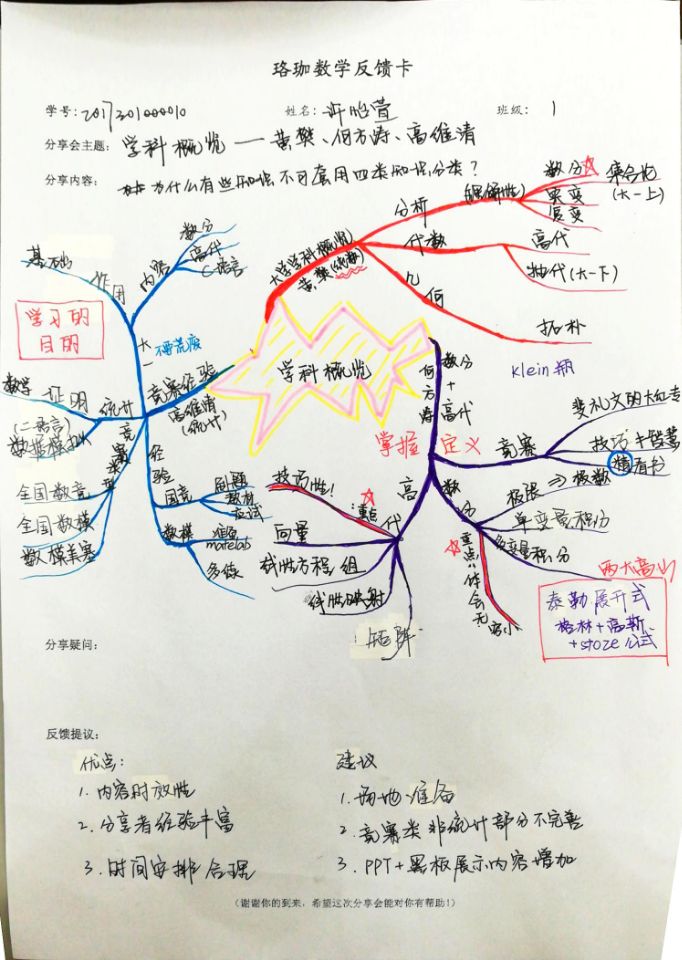 珞珈数学反馈卡
学号: 2017301000010 姓名: 许昭萱 班级: 1
分享会主题: 学科概览——黄樊、何方涛、高维清
分享内容: 为什么有些知识不可套用四类知识分类?
学科概览
大学学科概览
黄樊(代数)
分析
(理解性)
数分
实变
复变
集合论
(大一上)
代数
高代
抽代(大一下)
几何
拓扑
klein瓶
何方涛
数分+高代
掌握定义
竞赛
裴礼文的大红书
技巧
精看书
数分
极限⇒级数
单变量积分
多变量积分
重点:体会无穷小
两大高山
泰勒展开式
格林+高斯
+stoze公式
高代
重点:
技巧性!
向量
线性方程组
线性映射
矩阵
竞赛经验
高维清
(统计)
大一
不要荒废
内容
数分
高代
C语言
作用
基础
学习的
目的
统计
证明
数学
(二语言)
竞赛类型
全国数竞
全国数模
数模美赛
经验
国竞
例题
教材
应试
数模
准备
matelab
多练
分享疑问:
反馈提议:
优点:
1. 内容时效性
2. 分享者经验丰富
3. 时间安排合理
建议
1. 场地准备
2. 竞赛类非统计部分不完善
3. PPT+黑板展示内容增加
(谢谢你的到来,希望这次分享会能对你有帮助!)